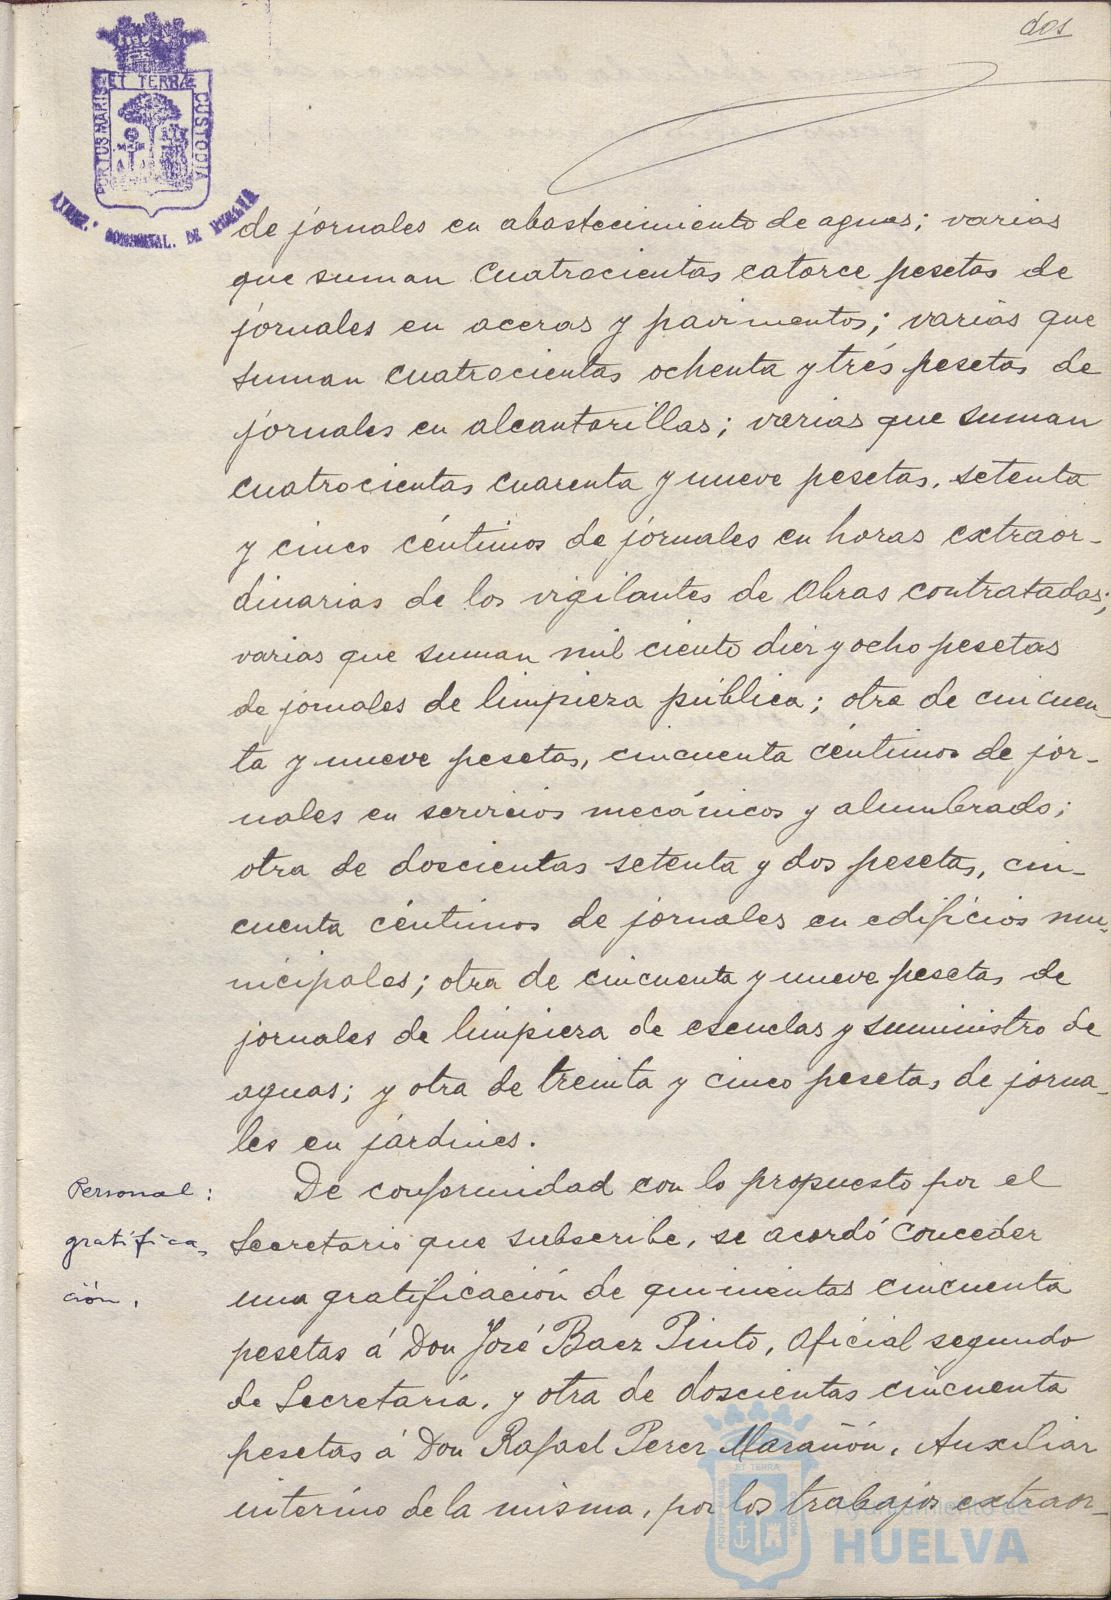 dos
PORTUS MARIS ET TERRÆ CUSTODIA
DE HUELVA
de jornales en abastecimiento de aguas; varias
que suman cuatrocientas catorce pesetas de
jornales en aceras y pavimentos; varias que
suman cuatrocientas ochenta y tres pesetas de
jornales en alcantarillas; varias que suman
cuatrocientas cuarenta y nueve pesetas, setenta
y cinco céntimos de jornales en horas extraor-
dinarias de los vigilantes de obras contratadas;
varias que suman mil ciento diez y ocho pesetas
de jornales de limpieza pública; otra de cincuen-
ta y nueve pesetas, cincuenta céntimos de jor-
nales en servicios mecánicos y alumbrado;
otra de doscientas setenta y dos pesetas, cin-
cuenta céntimos de jornales en edificios mu-
nicipales; otra de cincuenta y nueve pesetas de
jornales de limpieza de escuelas y suministro de
aguas; y otra de treinta y cinco pesetas de jorna-
les en jardines.
Personal:
gratifica-
ción.
De conformidad con lo propuesto por el
Secretario que subscribe, se acordó conceder
una gratificación de quinientas cincuenta
pesetas á Don José Baez Pinto, Oficial segundo
de Secretaría, y otra de doscientas cincuenta
pesetas á Don Rafael Perez Marañón, Auxiliar
interino de la misma, por los trabajos extraor-
Ayuntamiento de
HUELVA